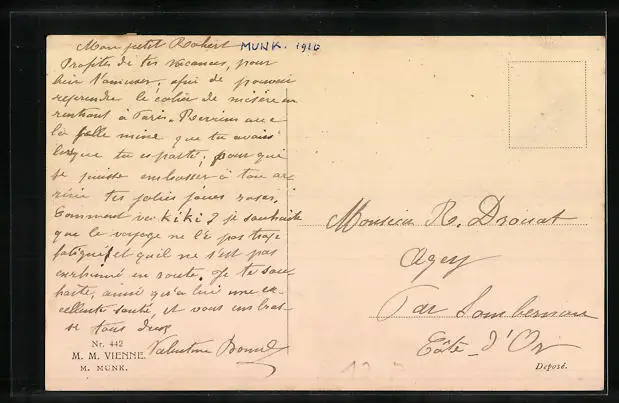 Mon petit Robert
MUNK. 1916
Profites de tes vacances, pour
bien t'amuser, afin de pouvoir
reprendre le colier de misère en
rentrant à Paris. Reviens avec
la belle mine que tu avais
lorsque tu es parti, pour que
je puisse embrasser à ton ar-
rivée tes jolies joues roses.
Comment va Kiki? je souhaite
que le voyage ne l'é pas trop
fatigué et qu'il ne s'est pas
enrhumé en route. Je te sou-
haite, ainsi qu'à lui une ex-
cellente santé, et vous embras-
se tous deux
Valentine
Nr. 442
M. M. VIENNE.
M. MUNK.
Monsieur R. Drouat
Agey
Par Sombernon
Côte-d'Or
Deposé.